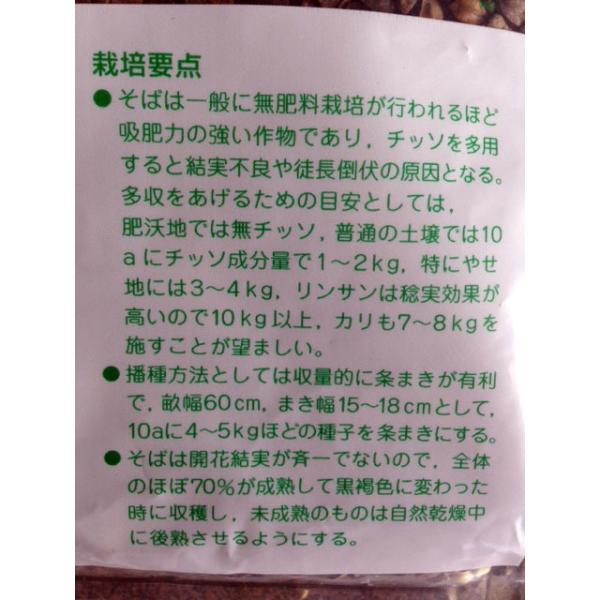 栽培要点
●そばは一般に無肥料栽培が行われるほど
吸肥力の強い作物であり，チッソを多用
すると結実不良や徒長倒伏の原因となる。
多収をあげるための目安としては，
肥沃地では無チッソ，普通の土壌では10
aにチッソ成分量で1〜2kg，特にやせ
地には3〜4kg，リンサンは稔実効果が
高いので10kg以上，カリも7〜8kgを
施すことが望ましい。
●播種方法としては収量的に条まきが有利
で，畝幅60cm，まき幅15〜18cmとして，
10aに4〜5kgほどの種子を条まきにする。
●そばは開花結実が斉一でないので，全体
のほぼ70%が成熟して黒褐色に変わった
時に収穫し，未成熟のものは自然乾燥中
に後熟させるようにする。